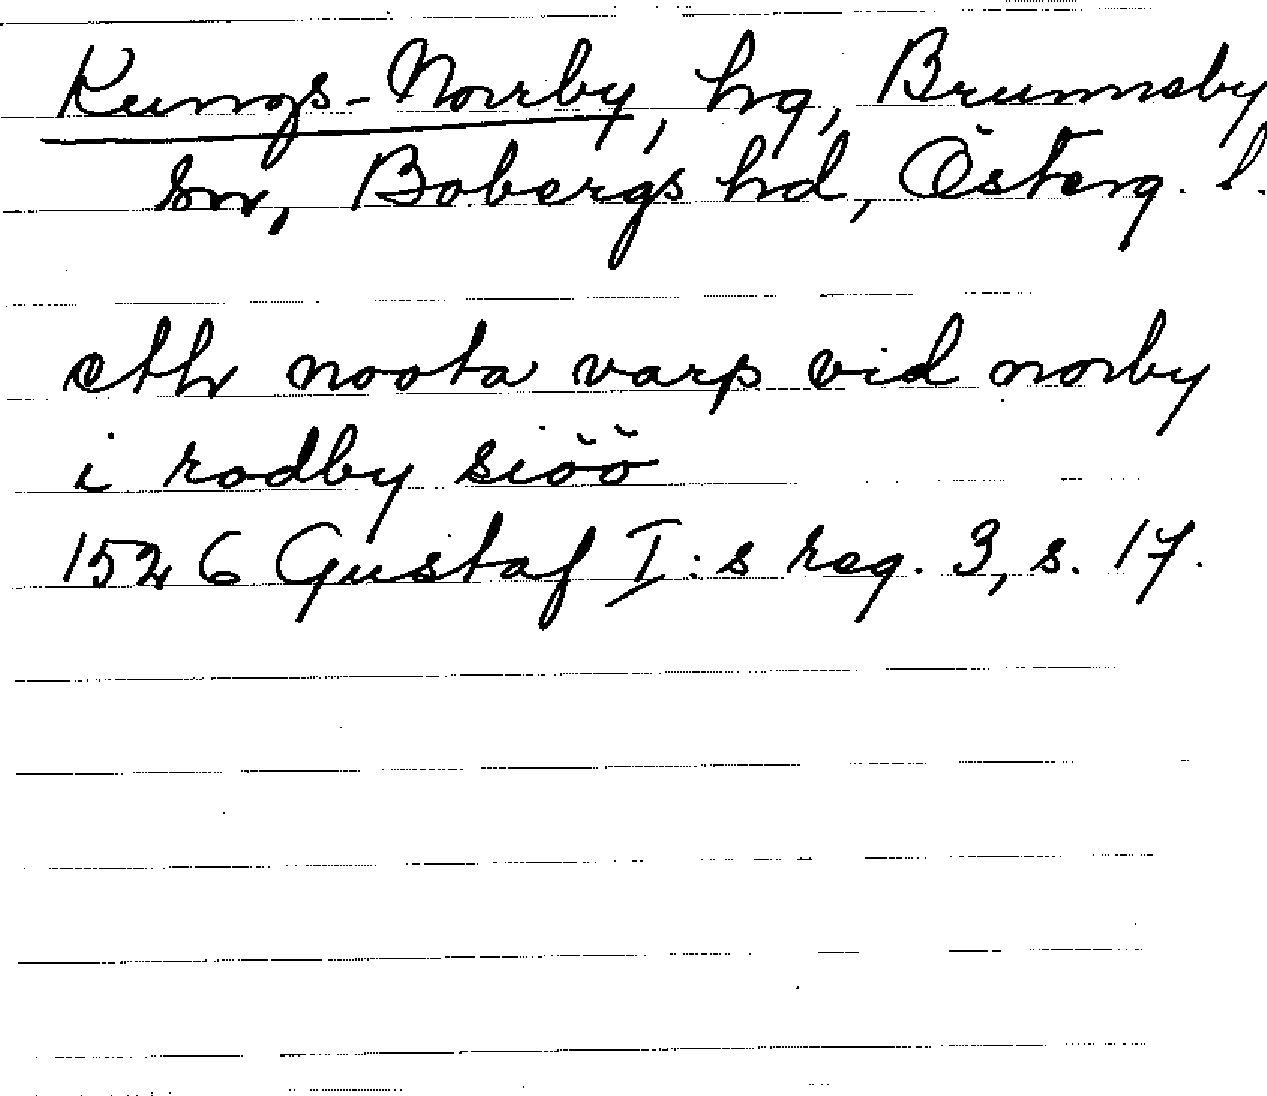 Kungs-Norrby, hg, Brunneby
sn, Bobergs hd, Österg. l.
eth noota varp vid norby
i rodby siöö
1526 Gustaf I:s reg. 3, s. 17.